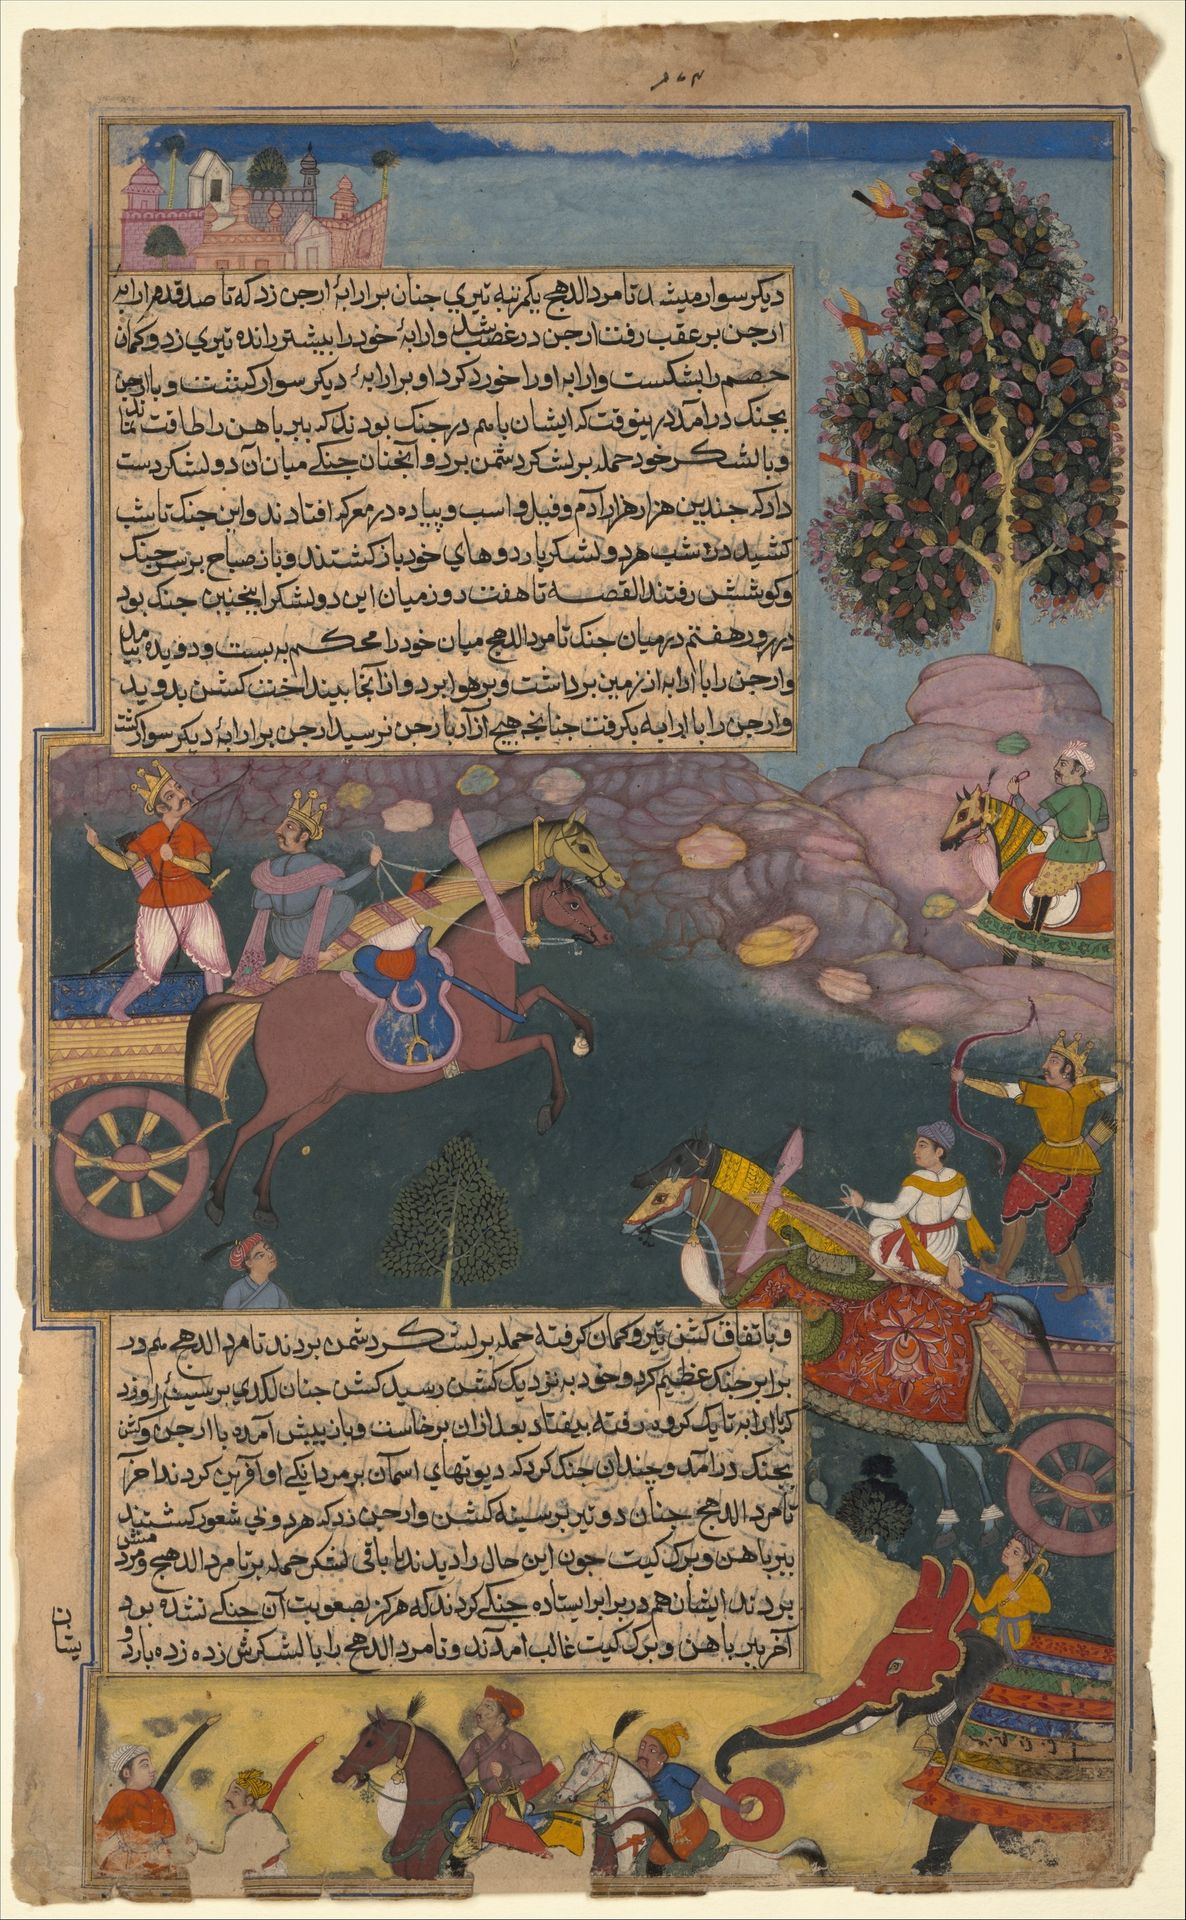 ۲۷۴
دیکر سوار میشد تامرد الدهج یکمرتبه تیری جنان بر ارابهٔ ارجن زد که تا صد قدم ارابه
ارجن بر عقب رفت ارجن در غصب شد وارابهٔ خود را بیشتر رانده تیری زد و کمان
خصم را بشکست وارابه او را خورد کرد او بر ارابهٔ دیکر سوار کشت و با ارجن
بجنک درامد درینوقت که ایشان باهم در جنک بودند که ببر باهن را طاقت نماند
و با لشکر خود حمله بر لشکر دشمن برد و آنجنان جنکے میان آن دو لشکر دست
داد که جندین هزار هزار آدم و فیل و اسب و پیاده در معرکه افتادند و این جنک تا شب
کشید در شب هر دو لشکر باردوهای خود باز کشتند و باز صباح بر سر جنک
و کوشش رفتند القصه تا هفت روز میان این دو لشکر اینجنین جنک بود
در روز هفتم در میان جنک تامرد الدهج میان خود را محکم به بست و دویده بیامد
و ارجن را با ارابه از زمین برداشت و بر هوا برد و از آنجا بینداخت کشن بدوید
و ارجن را با ارابه بکرفت جنانجه هیج آزار بارجن نرسید ارجن بر ارابهٔ دیکر سوار کشت
و باتفاق کشن تیر و کمان کرفته حمله بر لشکر دشمن بردند تامرد الدهج هم در
برابر جنک عظیم کرد و خود به نزدیک کشن رسید کشن جنان لکدی بر سینهٔ او زد
که با ارابه تا یک کروه رفته بیفتاد بعد از ان برخاست و باز پیش آمده با ارجن و کشن
بجنک درآمد و چندان جنک کرد که دیوتهای اسمان بر مردانکے او آفرین کردند آخر
تامرد الدهج جنان دو تیر بر سینه کشن و ارجن زد که هر دو بی شعور کشتند
ببر باهن و برک کیت جون این حال را دیدند با باقی لشکر حمله بر تامرد الدهج و مردمش
بردند ایشان هم در برابر ایستاده جنکے کردند که هرکز بصعوبت آن جنکے نشده بود
آخر ببر باهن و برک کیت غالب امدند و تامرد الدهج را با لشکرش زده زده باردو